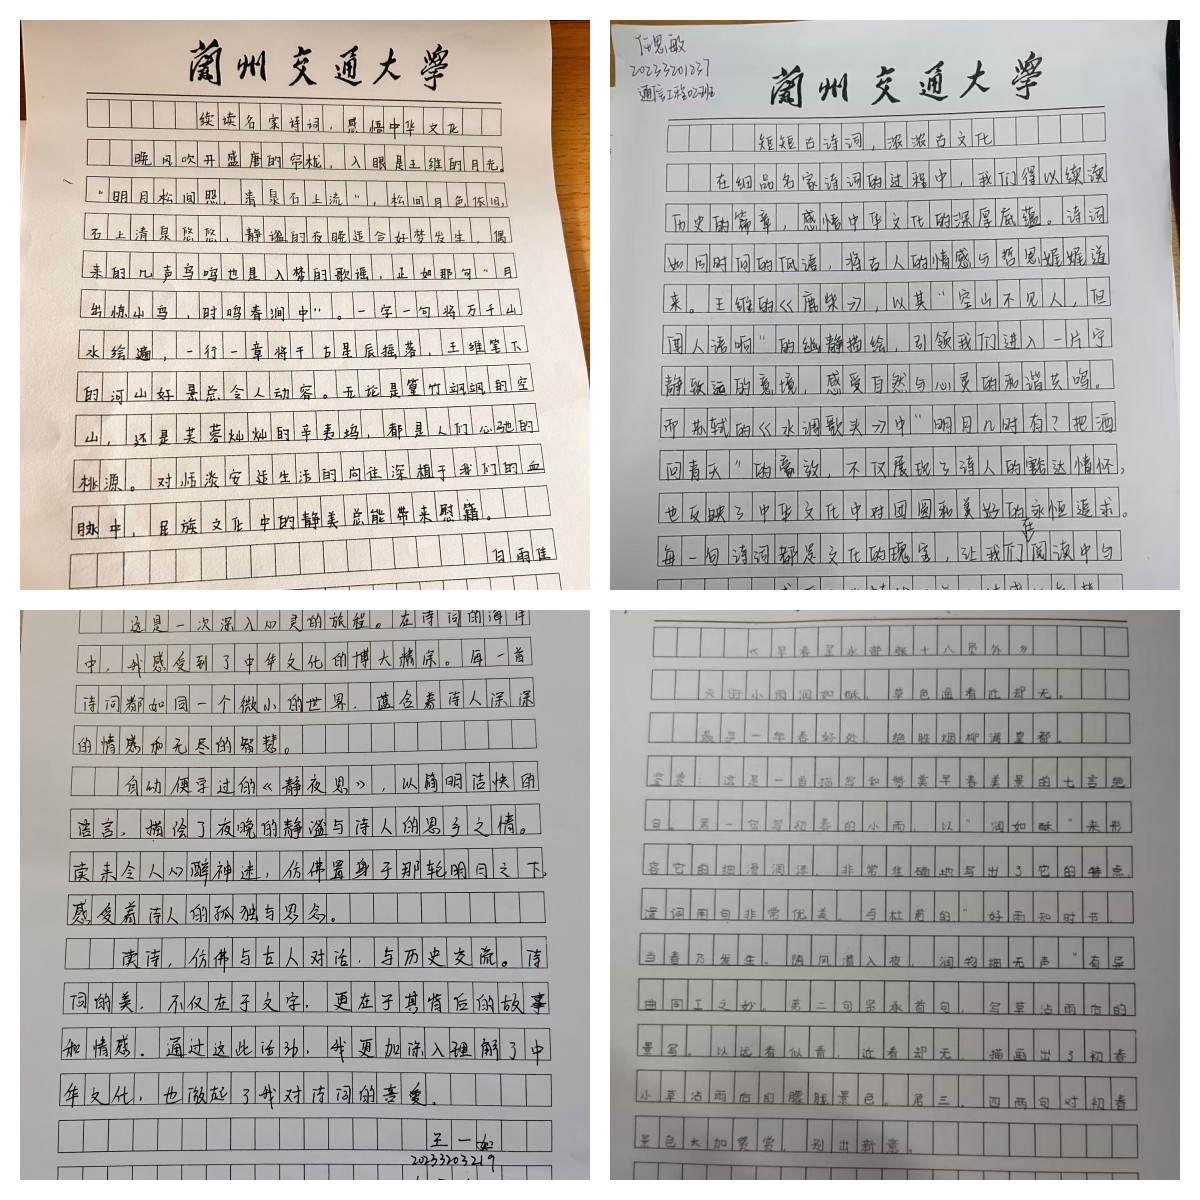 蘭州交通大學
续读名家诗词，感悟中华文化
晚风吹开盛唐的帘栊，入眼是王维的月光。
"明月松间照，清泉石上流"，松间月色依旧，
石上清泉悠悠，静谧的夜晚适合好梦发生，偶
来的几声鸟鸣也是入梦的歌谣，正如那句"月
出惊山鸟，时鸣春涧中"。一字一句将万千山
水绘遍，一行一章将千古星辰摇落，王维笔下
的河山好景总令人动容。无论是篁竹飒飒的空
山，还是芙蓉灿灿的辛夷坞，都是人们心驰的
桃源。对恬淡安适生活的向往深植于我们的血
脉中，民族文化中的静美总能带来慰籍。
白雨佳
任思敏
20233201237
通信工程02班
蘭州交通大學
短短古诗词，浓浓古文化
在细品名家诗词的过程中，我们得以续读
历史的篇章，感悟中华文化的深厚底蕴。诗词
如同时间的低语，将古人的情感与哲思娓娓道
来。王维的《鹿柴》，以其"空山不见人，但
闻人语响"的幽静描绘，引领我们进入一片宁
静致远的意境，感受自然与心灵的和谐共鸣。
而苏轼的《水调歌头》中"明月几时有？把酒
问青天"的豪放，不仅展现了诗人的豁达情怀，
也反映了中华文化中对团圆和美好的永恒追求。
每一句诗词都是文化的瑰宝，让我们在阅读中与
这是一次深入心灵的旅程。在诗词的海洋
中，我感受到了中华文化的博大精深。每一首
诗词都如同一个微小的世界，蕴含着诗人深深
的情感和无尽的智慧。
自幼便学过的《静夜思》，以简明洁快的
语言，描绘了夜晚的静谧与诗人的思乡之情。
读来令人心醉神迷，仿佛置身于那轮明月之下，
感受着诗人的孤独与思念。
读诗，仿佛与古人对话，与历史交流。诗
词的美，不仅在于文字，更在于其背后的故事
和情感。通过这此活动，我更加深入理解了中
华文化，也激起了我对诗词的喜爱。
王一如
20233203219
《早春呈水部张十八员外》
天街小雨润如酥，草色遥看近却无。
最是一年春好处，绝胜烟柳满皇都。
鉴赏：这是一首描写和赞美早春美景的七言绝
句。第一句写初春的小雨，以"润如酥"来形
容它的细滑润泽，非常准确地写出了它的特点，
遣词用句非常优美。与杜甫的"好雨知时节，
当春乃发生。随风潜入夜，润物细无声"有异
曲同工之妙。第二句紧承首句，写草沾雨后的
景写。以远看似青，近看却无，描画出了初春
小草沾雨后的朦胧景色。第三、四两句对初春
景色大加赞赏，别出新意。